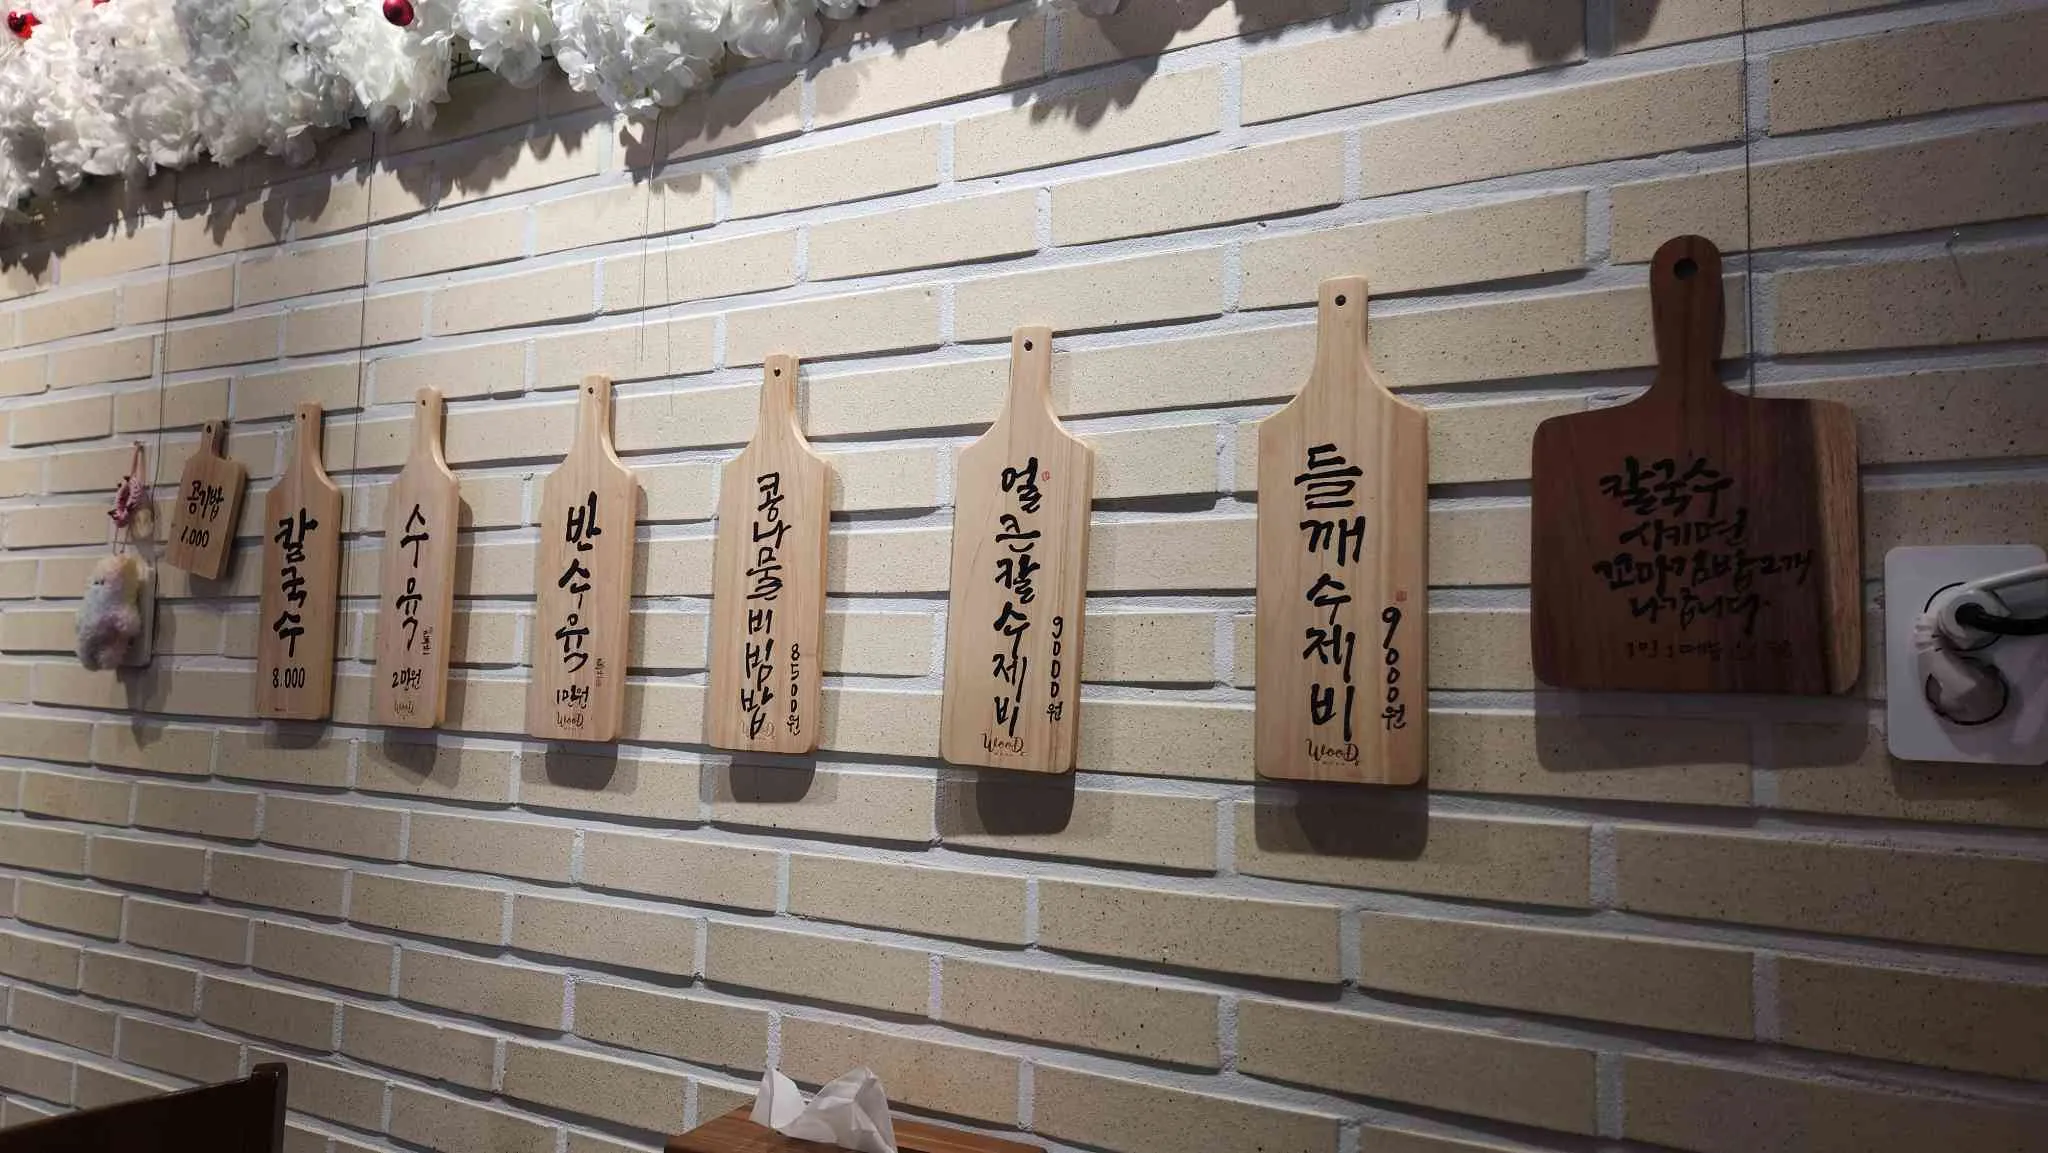 공기밥
1,000
칼국수
8.000
수육
2만원
반수육
1만원
WOOD
콩나물비빔밥
8500원
얼큰칼수제비
9000원
WOOD
들깨수제비
9000원
WOOD
칼국수
시키면
꼬마김밥2개
나갑니다.